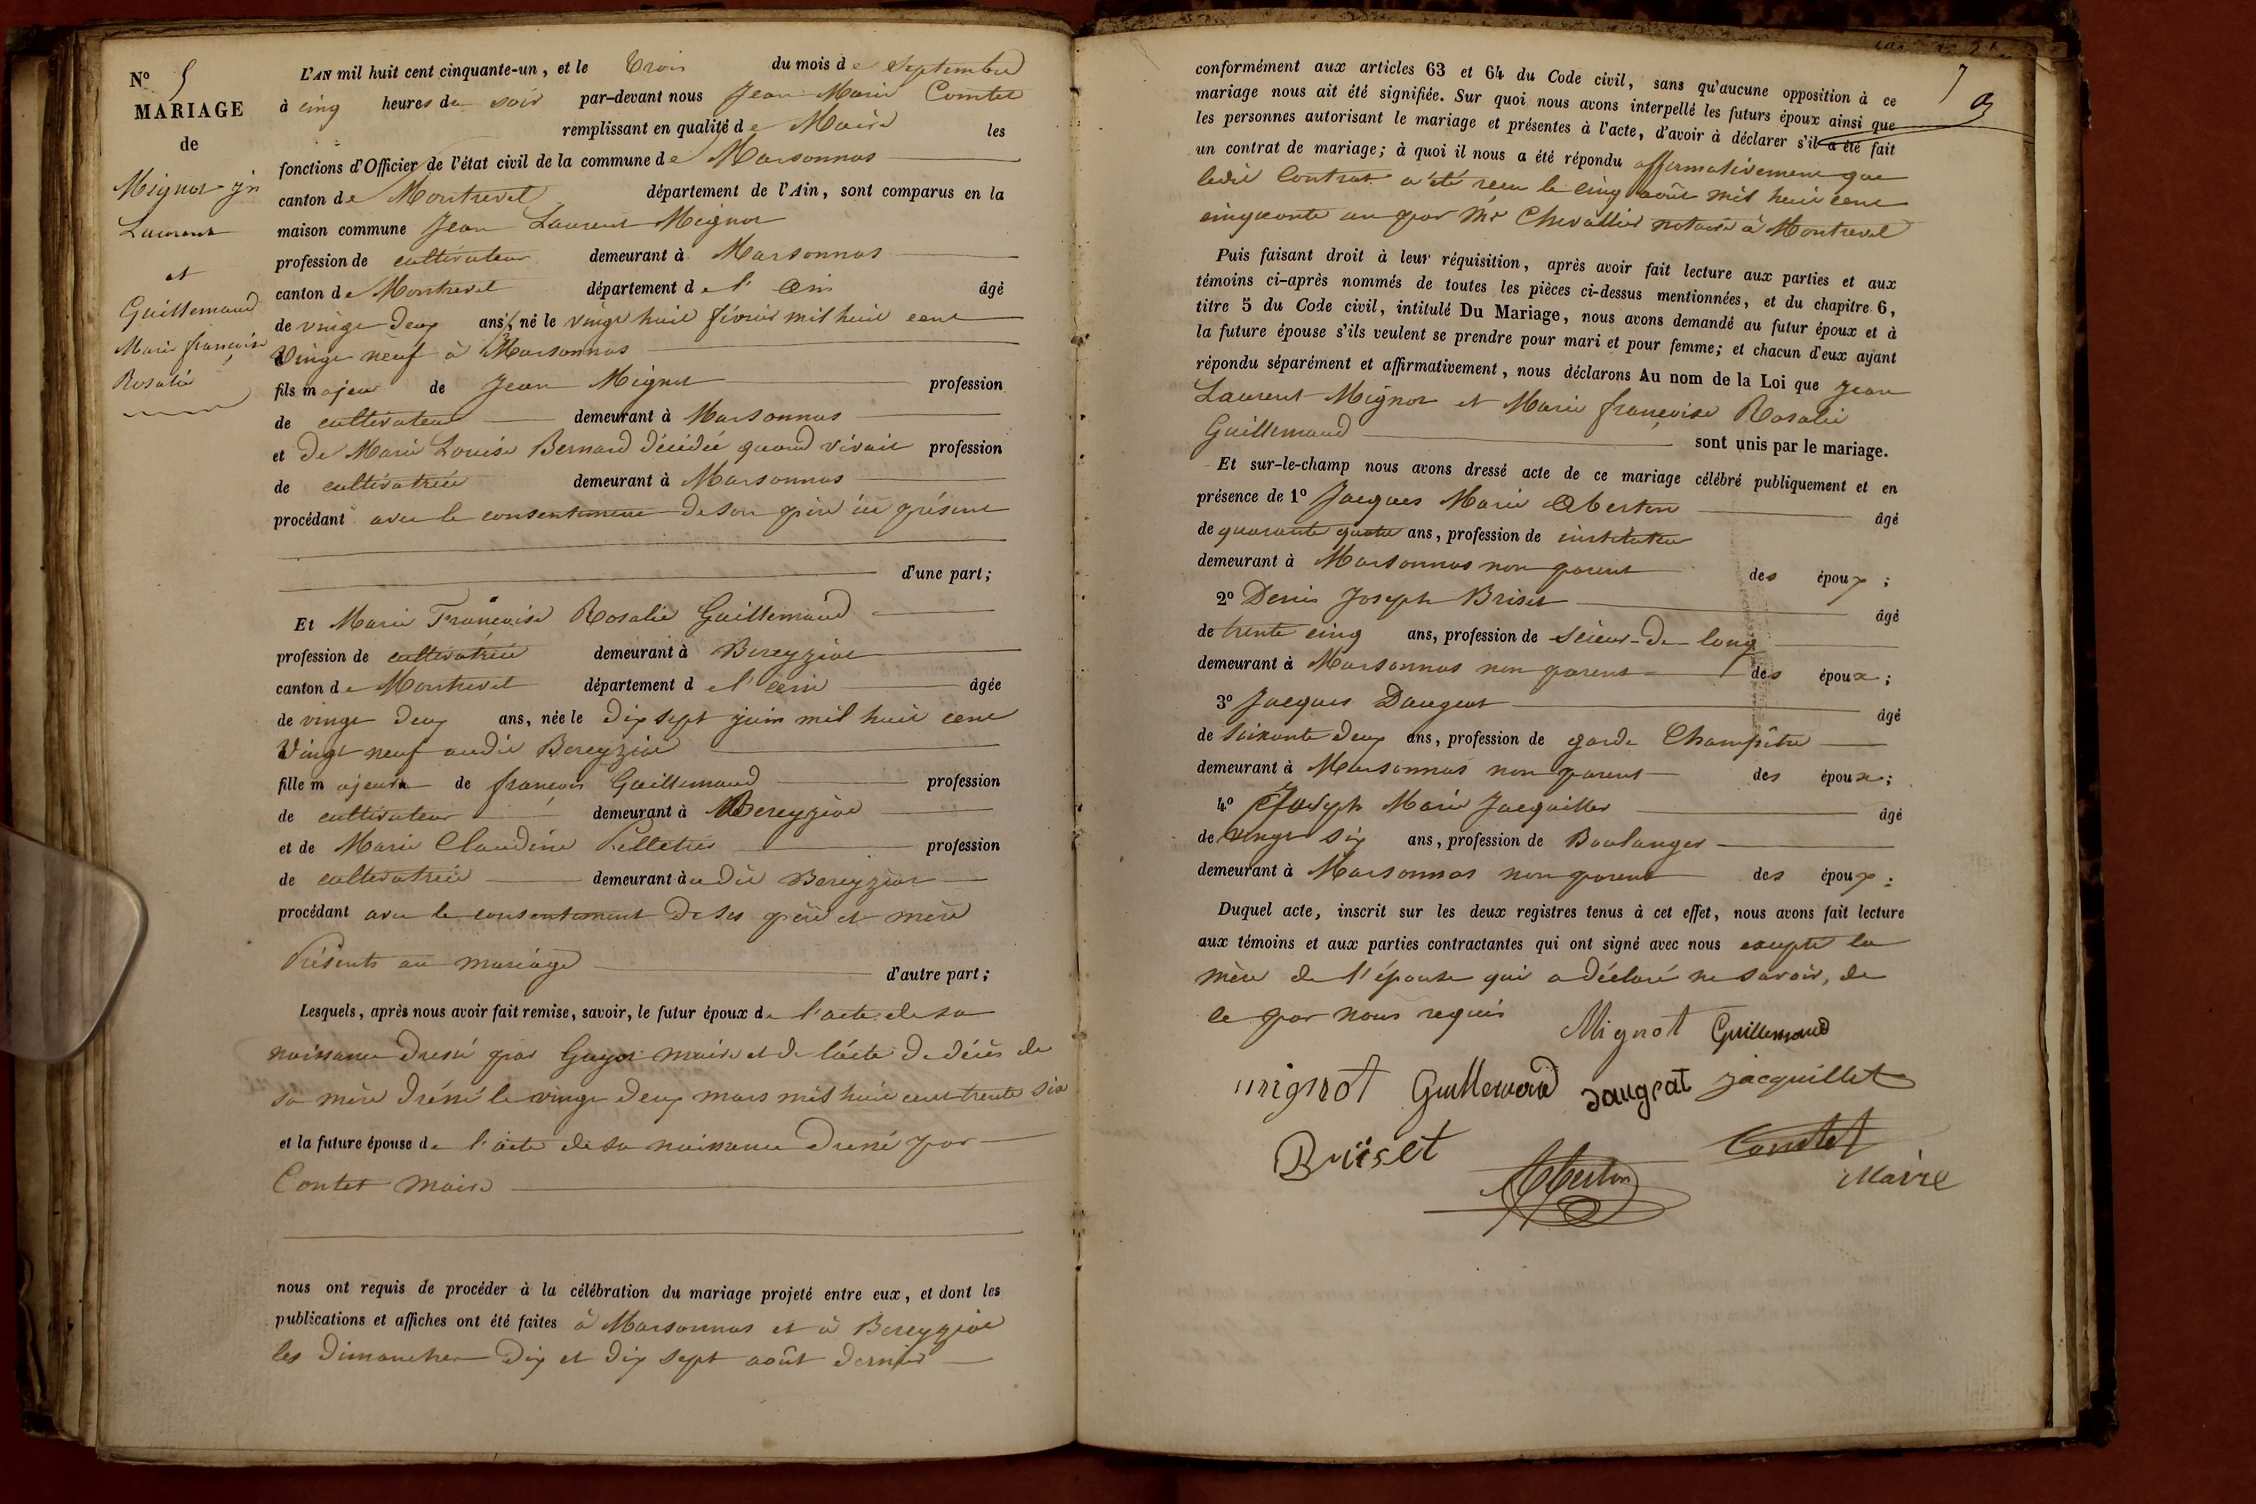 N° 5
MARIAGE
de
Mignot Jn
Laurent
et
Guillemaud
Marie françoise
Rosalie
L'AN mil huit cent cinquante-un, et le Trois du mois de Septembre
à cinq heures du soir par-devant nous Jean Marie Comtet
remplissant en qualité de Maire les
fonctions d'Officier de l'état civil de la commune de Marsonnas
canton de Montrevel département de l'Ain, sont comparus en la
maison commune Jean Laurent Mignot
profession de cultivateur demeurant à Marsonnas
canton de Montrevel département de l' Ain âgé
de vingt deux ans, né le vingt huit février mil huit cent
Vingt neuf à Marsonnas
fils majeur de Jean Mignot profession
de cultivateur demeurant à Marsonnas
et de Marie Louise Bernard décédée quand vivait profession
de cultivatrice demeurant à Marsonnas
procédant avec le consentement de son père ici présent
d'une part;
Et Marie Françoise Rosalie Guillemaud
profession de cultivatrice demeurant à Bereyziat
canton de Montrevel département de l'ain âgée
de vingt deux ans, née le dix sept juin mil huit cent
Vingt neuf audit Bereyziat
fille majeure de françois Guillemaud profession
de cultivateur demeurant à Bereyziat
et de Marie Claudine Pelletier profession
de cultivatrice demeurant à udit Bereyziat
procédant avec le consentement de ses père et mère
Présents au mariage d'autre part;
Lesquels, après nous avoir fait remise, savoir, le futur époux de l'acte de sa
naissance dressé par Guyot maire et de l'acte de décès de
sa mère dressé le vingt deux mars mil huit cent trente six
et la future épouse de l'acte de sa naissance dressé par
Contet maire
nous ont requis de procéder à la célébration du mariage projeté entre eux, et dont les
publications et affiches ont été faites à Marsonnas et à Bereyziat
les dimanches dix et dix sept août dernier
7
conformément aux articles 63 et 64 du Code civil, sans qu'aucune opposition à ce
mariage nous ait été signifiée. Sur quoi nous avons interpellé les futurs époux ainsi que
les personnes autorisant le mariage et présentes à l'acte, d'avoir à déclarer s'il a été fait
un contrat de mariage; à quoi il nous a été répondu affirmativement que
ledit Contrat a été reçu le cinq août mil huit cent
cinquante un par Mr Chevallier notaire à Montrevel
Puis faisant droit à leur réquisition, après avoir fait lecture aux parties et aux
témoins ci-après nommés de toutes les pièces ci-dessus mentionnées, et du chapitre 6,
titre 5 du Code civil, intitulé Du Mariage, nous avons demandé au futur époux et à
la future épouse s'ils veulent se prendre pour mari et pour femme; et chacun d'eux ayant
répondu séparément et affirmativement, nous déclarons Au nom de la Loi que Jean
Laurent Mignot et Marie françoise Rosalie
Guillemaud sont unis par le mariage.
Et sur-le-champ nous avons dressé acte de ce mariage célébré publiquement et en
présence de 1° Jacques Marie Aberton âgé
de quarante quatre ans, profession de instituteur
demeurant à Marsonnas non parent des époux;
2° Denis Joseph Briset âgé
de trente cinq ans, profession de Scieur-de long
demeurant à Marsonnas non parent des époux;
3° Jacques Daugeat âgé
de Soixante deux ans, profession de garde Champêtre
demeurant à Marsonnas non parent des époux;
4° Joseph Marie Jacquillet âgé
de vingt six ans, profession de Boulanger
demeurant à Marsonnas non parent des époux:
Duquel acte, inscrit sur les deux registres tenus à cet effet, nous avons fait lecture
aux témoins et aux parties contractantes qui ont signé avec nous excepté la
mère de l'épouse qui a déclaré ne savoir, de
ce par nous requis
Mignot Guillemaud
mignot Guillemaud daugeat jacquillet
Briset Aberton Comtet
Maire